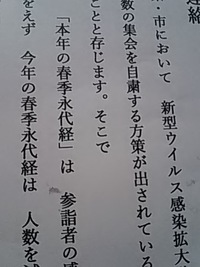 連絡
・市において　新型ウイルス感染拡大
数の集会を自粛する方策が出されている
ことと存じます。そこで
「本年の春季永代経」は　参詣者の感
をえず　今年の春季永代経は　人数を減